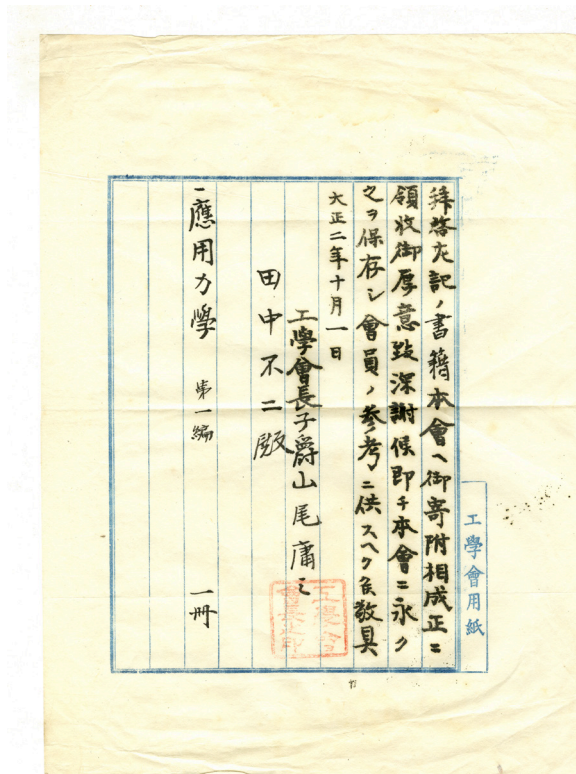 拝啓左記ノ書籍本會ヘ御寄附相成正ニ
領收御厚意致深謝候即チ本會ニ永ク
之ヲ保存シ會員ノ參考ニ供スヘク候敬具
大正二年十月一日
工學會長子爵山尾庸三
田中不二殿
一應用力學 第一編 一冊
工學會用紙